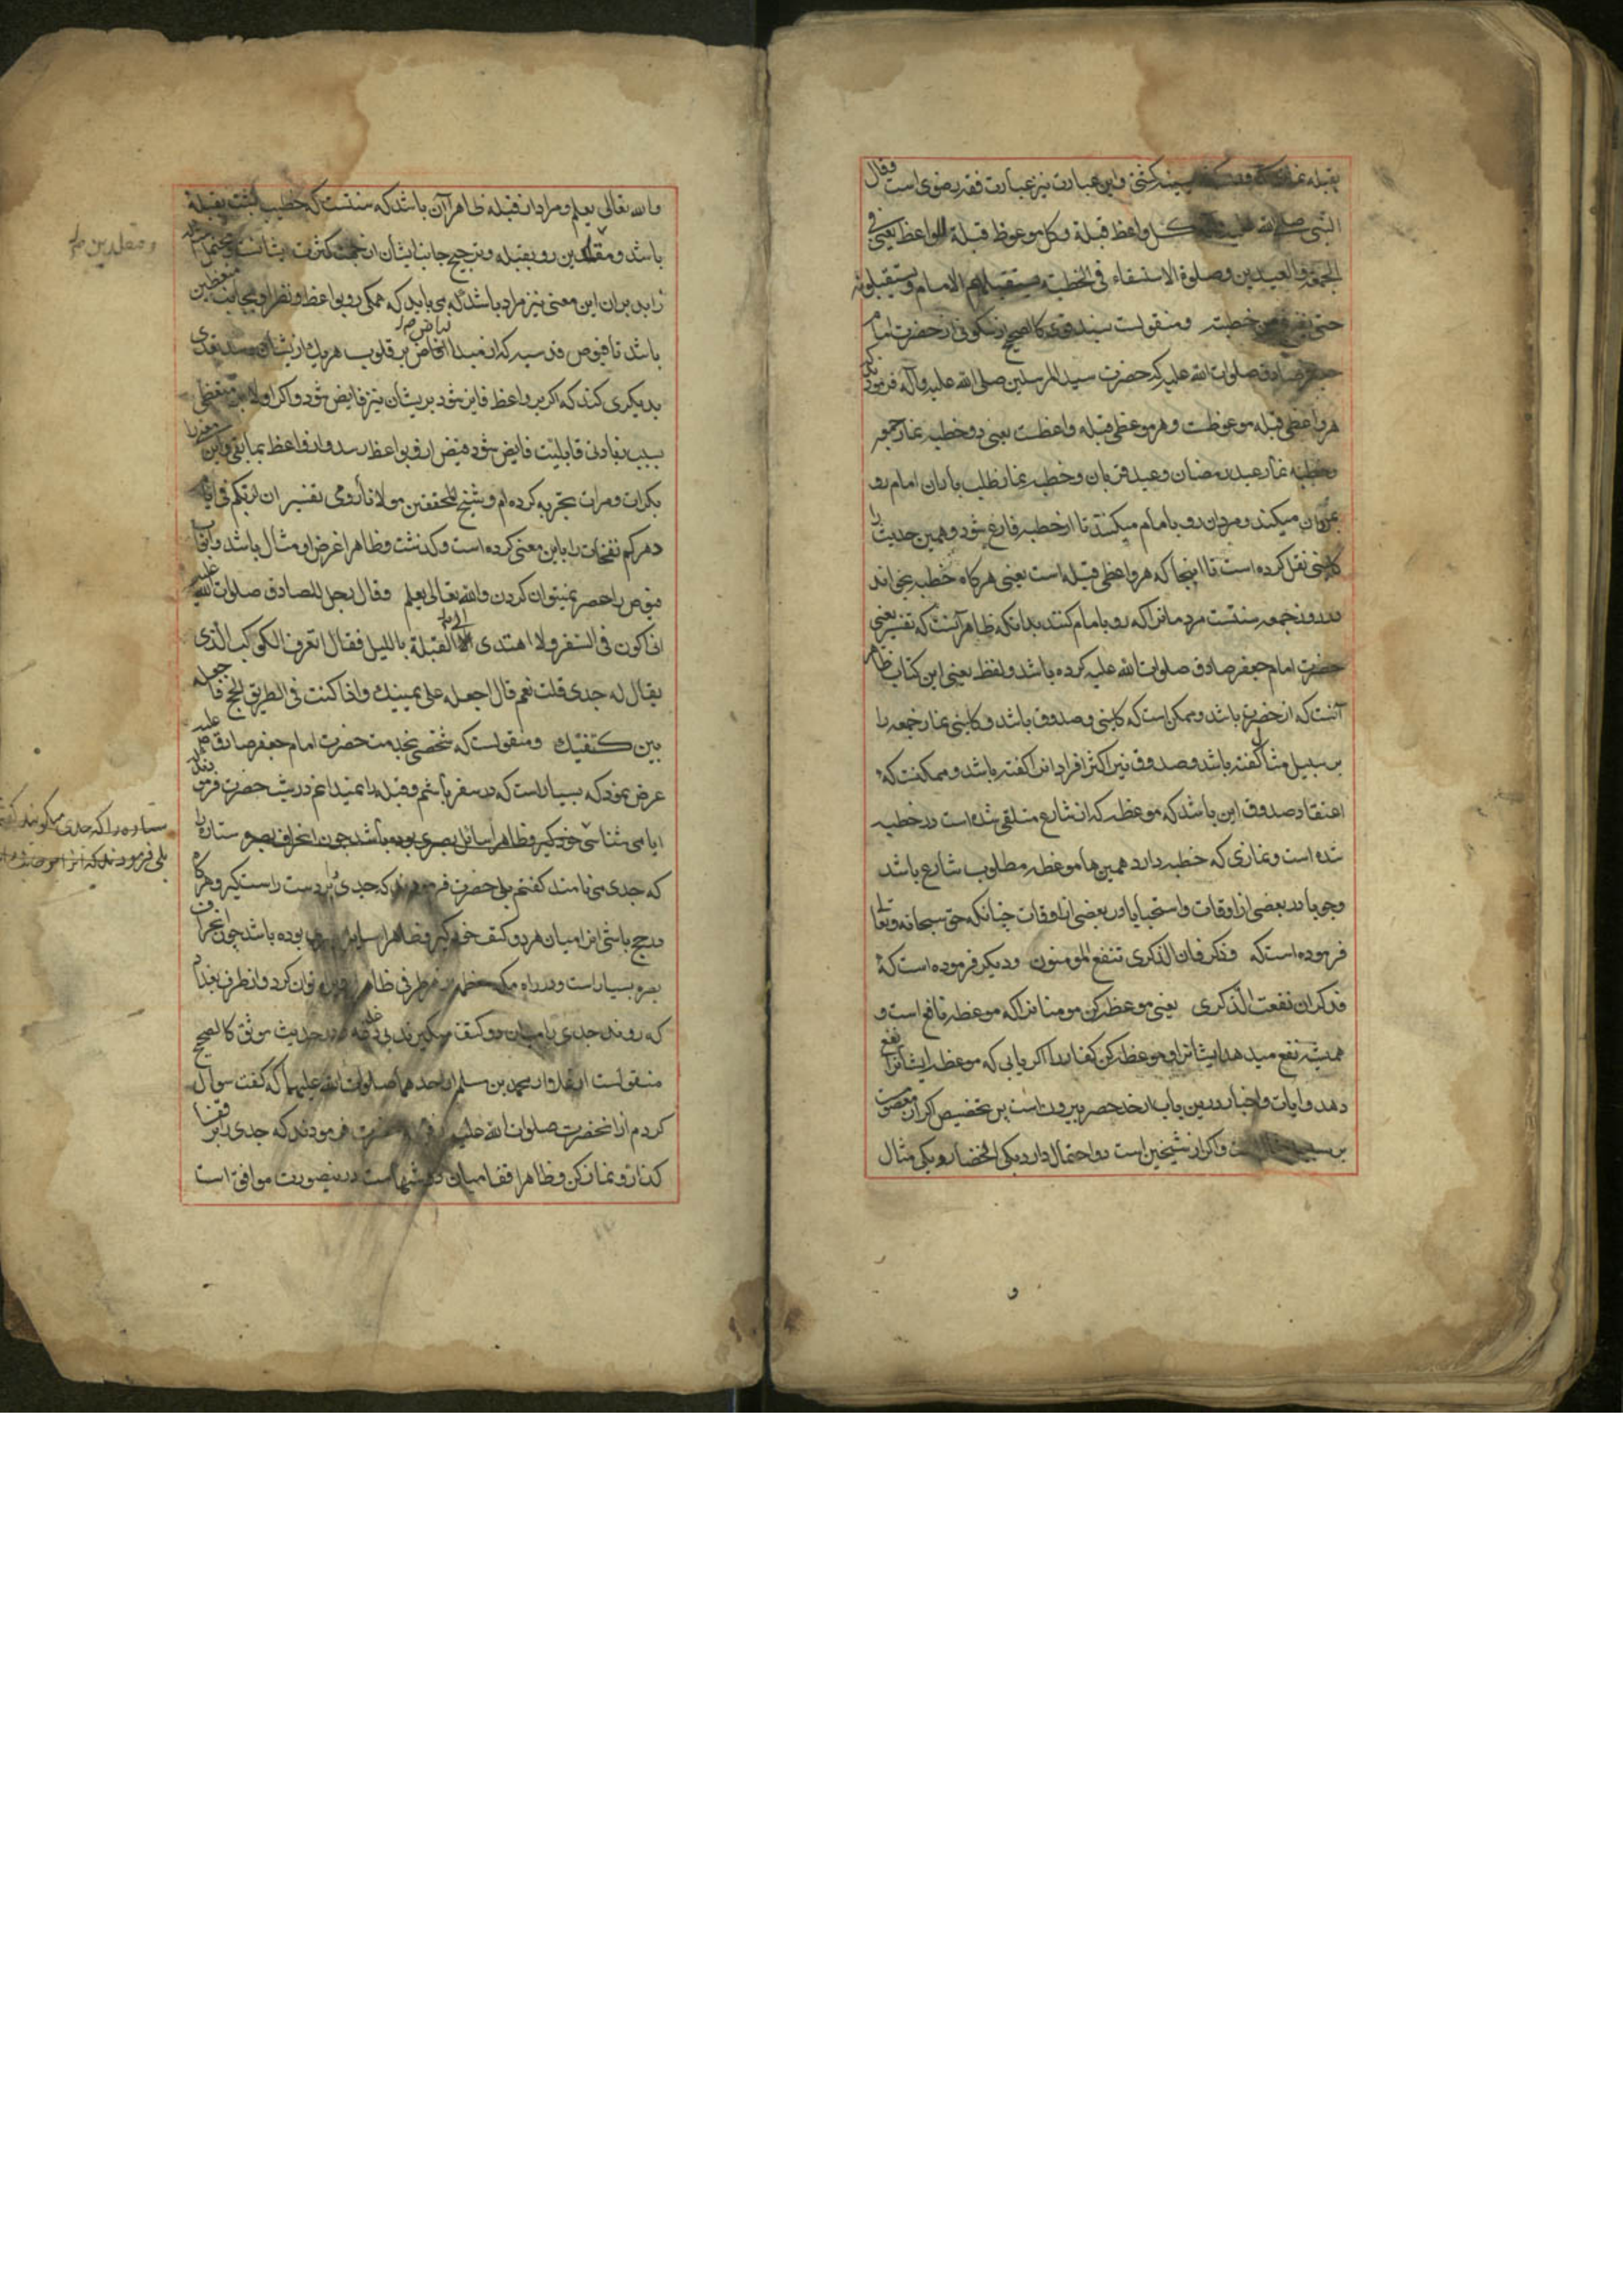 بقبله نماز کشتی و این عبارت نیز عبارت فقه رضوی است وقال
النبی صلی الله علیه وآله کل واعظ قبلة وکل موعوظ قبلة للواعظ یعنی فی
الجمعة والعیدین وصلوة الاستسقاء فی الخطبة یستقبلهم الامام ویستقبلونه
حتی یفرغ من خطبته ومنقولست بسند قوی کالصحیح از سکونی از حضرت امام
جعفر صادق صلوات الله علیه که حضرت سید المرسلین صلی الله علیه وآله فرمودند که
هر واعظی قبله موعوظست و هر موعظی قبله واعظست یعنی در خطبه نماز جمعه
وخطبه نماز عید رمضان و عید قربان وخطبه نماز طلب باران امام رو
بمردمان میکند و مردمان رو بامام میکنند تا از خطبه فارغ شود و همین حدیث را
کلینی نقل کرده است تا اینجا که هر واعظی قبله است یعنی هرکاه خطبه میخواند
در روز جمعه سنتست مردمانرا که رو بامام کنند بدانکه ظاهر آنست که تفسیر یعنی
حضرت امام جعفر صادق صلوات الله علیه کرده باشد و لفظ یعنی این کتاب ظاهر
آنست که از حضرت باشد و ممکن است که کلینی و صدوق باشد و کلینی نماز جمعه را
بر سبیل مثال گفته باشد و صدوق نیز اکثر افراد انرا کفته باشد و ممکنست که
اعتقاد صدوق این باشد که موعظه که از شارع متلقی شده است در خطبه
شده است و نمازی که خطبه دارد همین ها موعظه مطلوب شارع باشد
وجوبا در بعضی از اوقات و استحبابا در بعضی از اوقات چنانکه حق سبحانه و تعالی
فرموده است که وذکر فان الذکری تنفع المؤمنون و دیکر فرموده است که
فذکر ان نفعت الذکری یعنی موعظه کن مومنانرا که موعظه نافع است و
همیشه نفع میدهد ایشانرا و موعظه کن کفار را اکر یابی که موعظه ایشانرا نفع
دهد و ایات و اخبار درین باب از حد حصر بیرونست پس تخصیص اکر از معصومست
بر سبیل مثال است و اکر از شیخین است دو احتمال دارد یکی انحصار و یکی مثال
و
والله تعالی یعلم و مراد از قبله ظاهرا آن باشد که سنتست که خطیب پشت بقبله
باشد و مقلدین رو بقبله و ترجیح جانب ایشان از جهت کثرت ایشانست و محتمل است
زاید بر ان این معنی نیز مراد باشد که می باید که همکی رو بواعظ و نظر او بجانب متعظین
باشد تا فیوض قدسیه که از مبدا فیاض بر قلوب هر یک از ایشان رسد تعدی
بدیکری کند که اکر بر واعظ فایض شود بریشان نیز فایض شود و اکر اولا بر متعظی
بسبب زیادتی قابلیت فایض شود فیض از او بواعظ رسد و از واعظ بمابقی و این معنی را
بکرات و مرات تجربه کرده ام و شیخ المحققین مولانا رومی تفسیر ان لربکم فی ایام
دهرکم نفحات را باین معنی کرده است و کذشت و ظاهرا غرض او مثال باشد و ابواب
فیوض را حصر نمیتوان کردن والله تعالی یعلم وقال رجل للصادق صلوات الله علیه
انی اکون فی السفر ولا اهتدی الی القبلة باللیل فقال اتعرف الکوکب الذی
یقال له جدی قلت نعم قال اجعله علی یمینک واذا کنت فی الطریق الحج فاجعله
بین کتفیک ومنقولست که شخصی بخدمت حضرت امام جعفر صادق صلوات الله علیه
عرض نمود که بسیار است که در سفر باشم و قبله را نمیدانم در شب حضرت فرمودند
ایا می شناسی خود کیر و ظاهرا سائل بصری بوده باشد چون انحراف بصره ستاره را
که جدی می نامند کفتم بلی حضرت فرمودند که جدی را بر دست راست کیر و هرکاه
در حج باشی انرا میان هر دو کتف خود کیر و ظاهرا سایل بصری بوده باشد چون انحراف
بصره بسیار است و در راه مکه معظمه توان کرد و از طرف بغداد
که روند جدی را میان دو کتف میکیرند بی دغدغه و در حدیث موثق کالصحیح
منقولست از محمد بن مسلم از احدهما صلوات الله علیهما که کفت سوال
کردم از انحضرت صلوات الله علیه از قبله حضرت فرمودند که جدی را بر قفا
کذار و نماز کن و ظاهرا قفا میان دوشهاست درینصورت موافق است
و مقلدین
ستاره را که جدی میکویند کفتم
بلی فرمودند که انرا بر